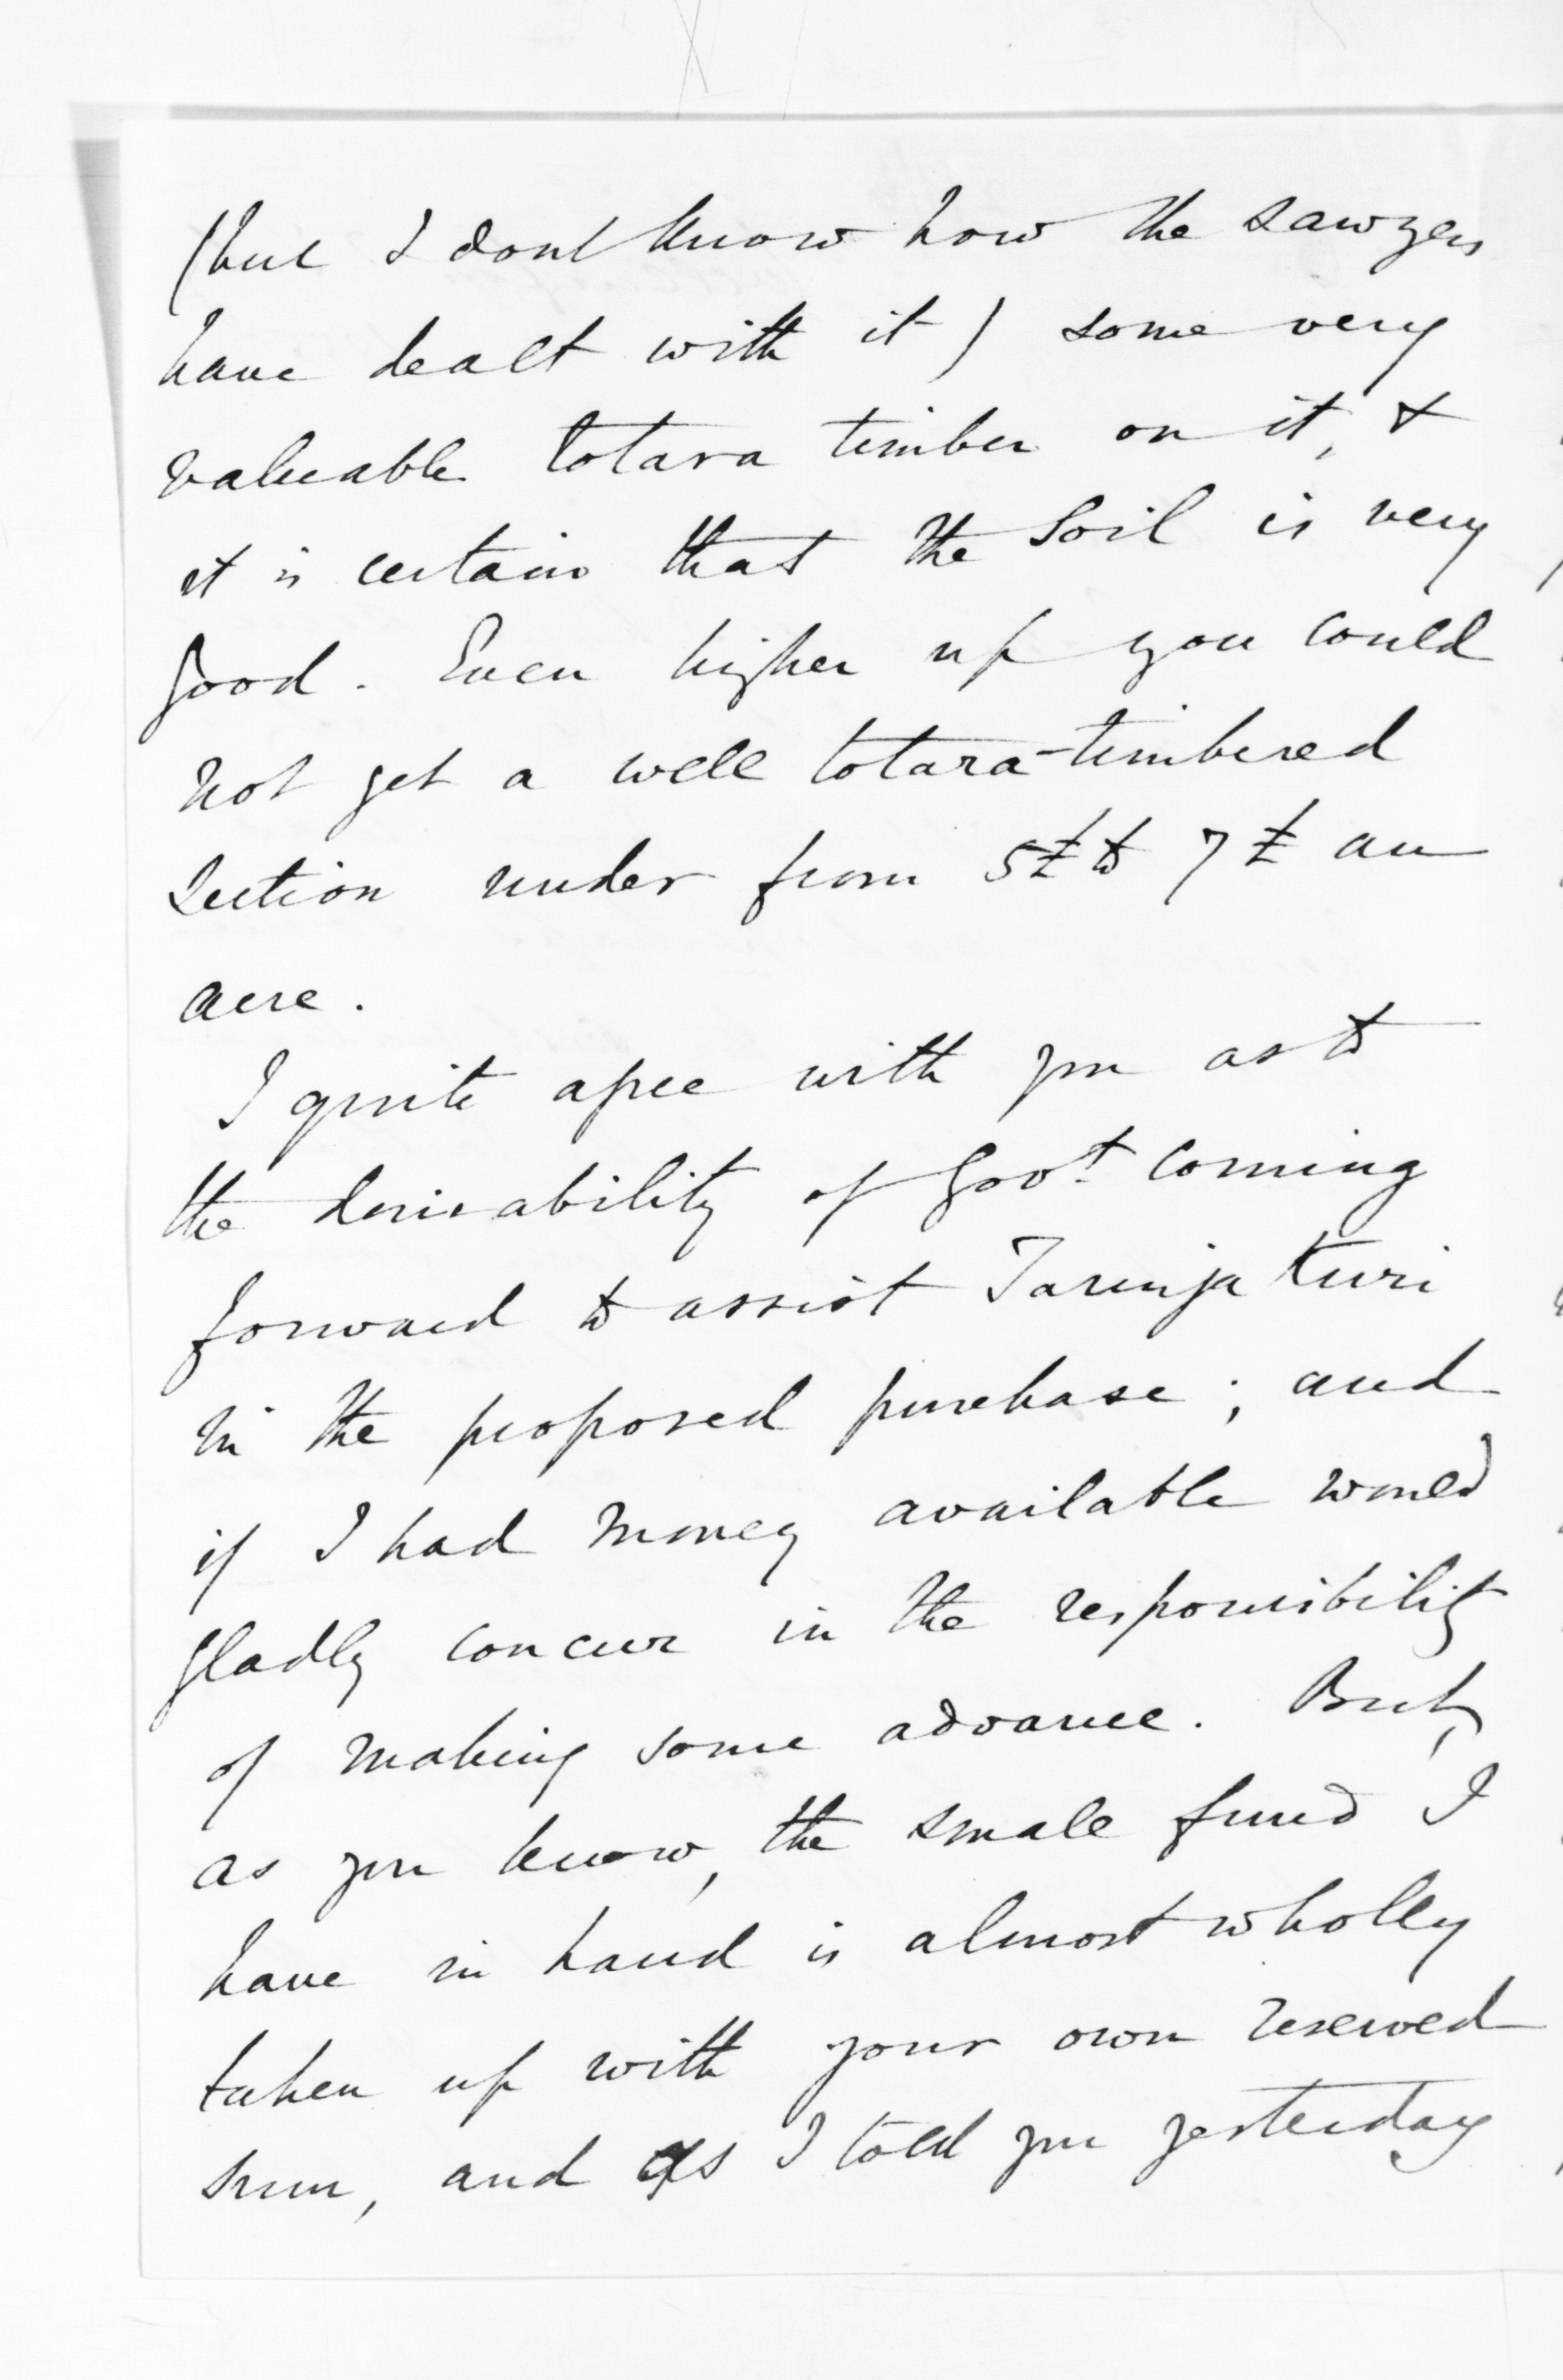 (but I dont know how the sawyers
have dealt with it) some very
valuable totara timber on it, &
it is certain that the Soil is very
good. Even higher up you could
not get a well totara-timbered
Section under from 5£ to 7£ an
acre.
I quite agree with you as to
the desirability of Govt. coming
forward to assist Taringa Kuri
in the proposed purchase; and
if I had money available would
gladly concur in the responsibility
of making some advance. But,
as you know, the small fund I
have in hand is almost wholly
taken up with your own reserved
sum, and as I told you yesterday